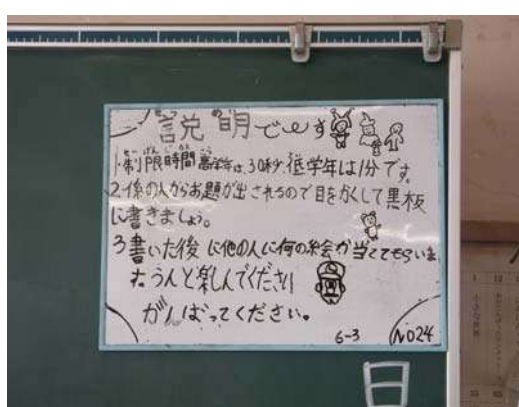 説明でーす
1.制限時間高学年は、30秒、低学年は1分です。
2.係の人からお題が出されるので目をかくして黒板
に書きましょう。
3書いた後に他の人に何の絵会か当ててもらいま
す。うんと楽しんでください
がんばってください。
6-3
NO24
日